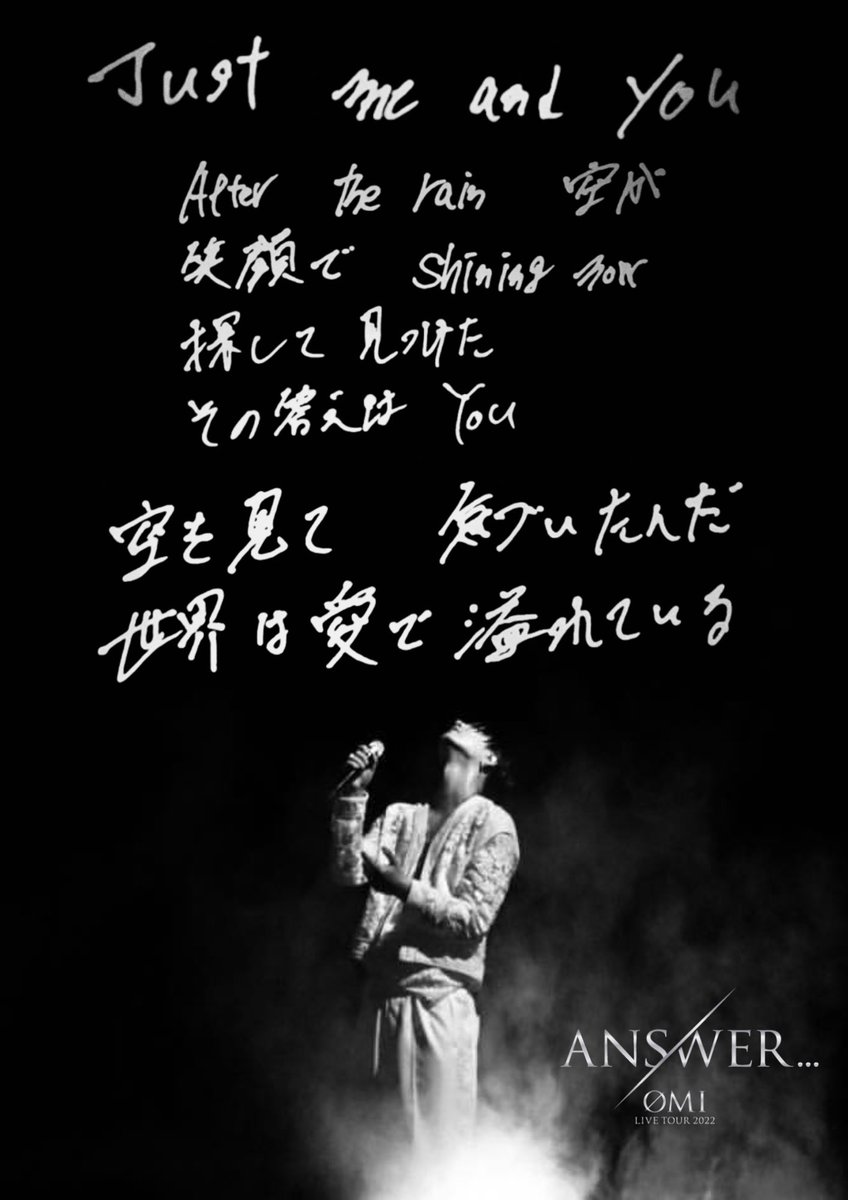 Just me and you
After the rain 空が
笑顔で shining now
探して見つけた
その答えは You
空を見て 気づいたんだ
世界は愛で溢れている
ANSWER...
ØMI
LIVE TOUR 2022